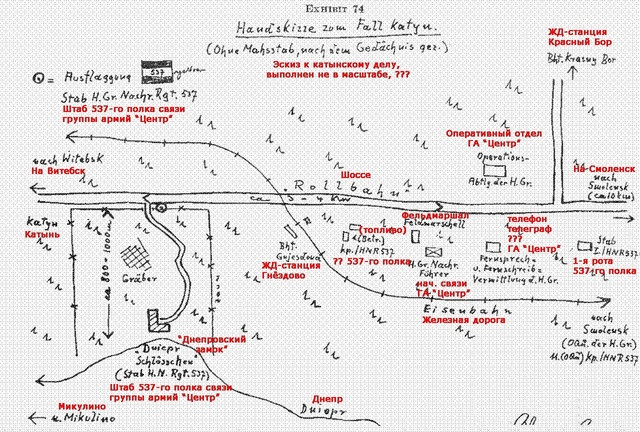 EXHIBIT 74
Handskizze zum Fall Katyn.
(Ohne Mahsstab, nach dem Gedächtnis gez.)
Эскиз к катынскому делу,
выполнен не в масштабе, ???
= Ausflaggung
537
Stab H.Gr. Nachr. Rgt. 537
Штаб 537-го полка связи
группы армий "Центр"
ЖД-станция
Красный Бор
Bht. Krasny Bor
nach Witebsk
На Витебск
Оперативный отдел
ГА "Центр"
Operations-
Abtlg. der H.Gr.
Шоссе
Rollbahn
ca 3-4 km
На Смоленск
nach
Smolensk
Katyn
Катынь
ca 800-1000m
Gräber
Bht.
Gnjesdowa
ЖД-станция
Гнёздово
(топливо)
(Betr.)
Kp./HNR 537
?? 537-го полка
Фельдмаршал
Feldmarschall
H.Gr. Nachr.
Führer
нач. связи
ГА "Центр"
телефон
телеграф
???
ГА "Центр"
Fernsprech-
u. Fernschreib-
Vermittlung d. H.Gr.
Stab
I./HNR 537
1-я рота
537-го полка
Eisenbahn
Железная дорога
nach
Smolensk
(Oaü. der H.Gr.)
"Днепровский
замок"
Dniepr
"Schlösschen"
(Stab H.N. Rgt. 537)
Штаб 537-го полка связи
группы армий "Центр"
Микулино
n. Mikulino
Днепр
Dniepr